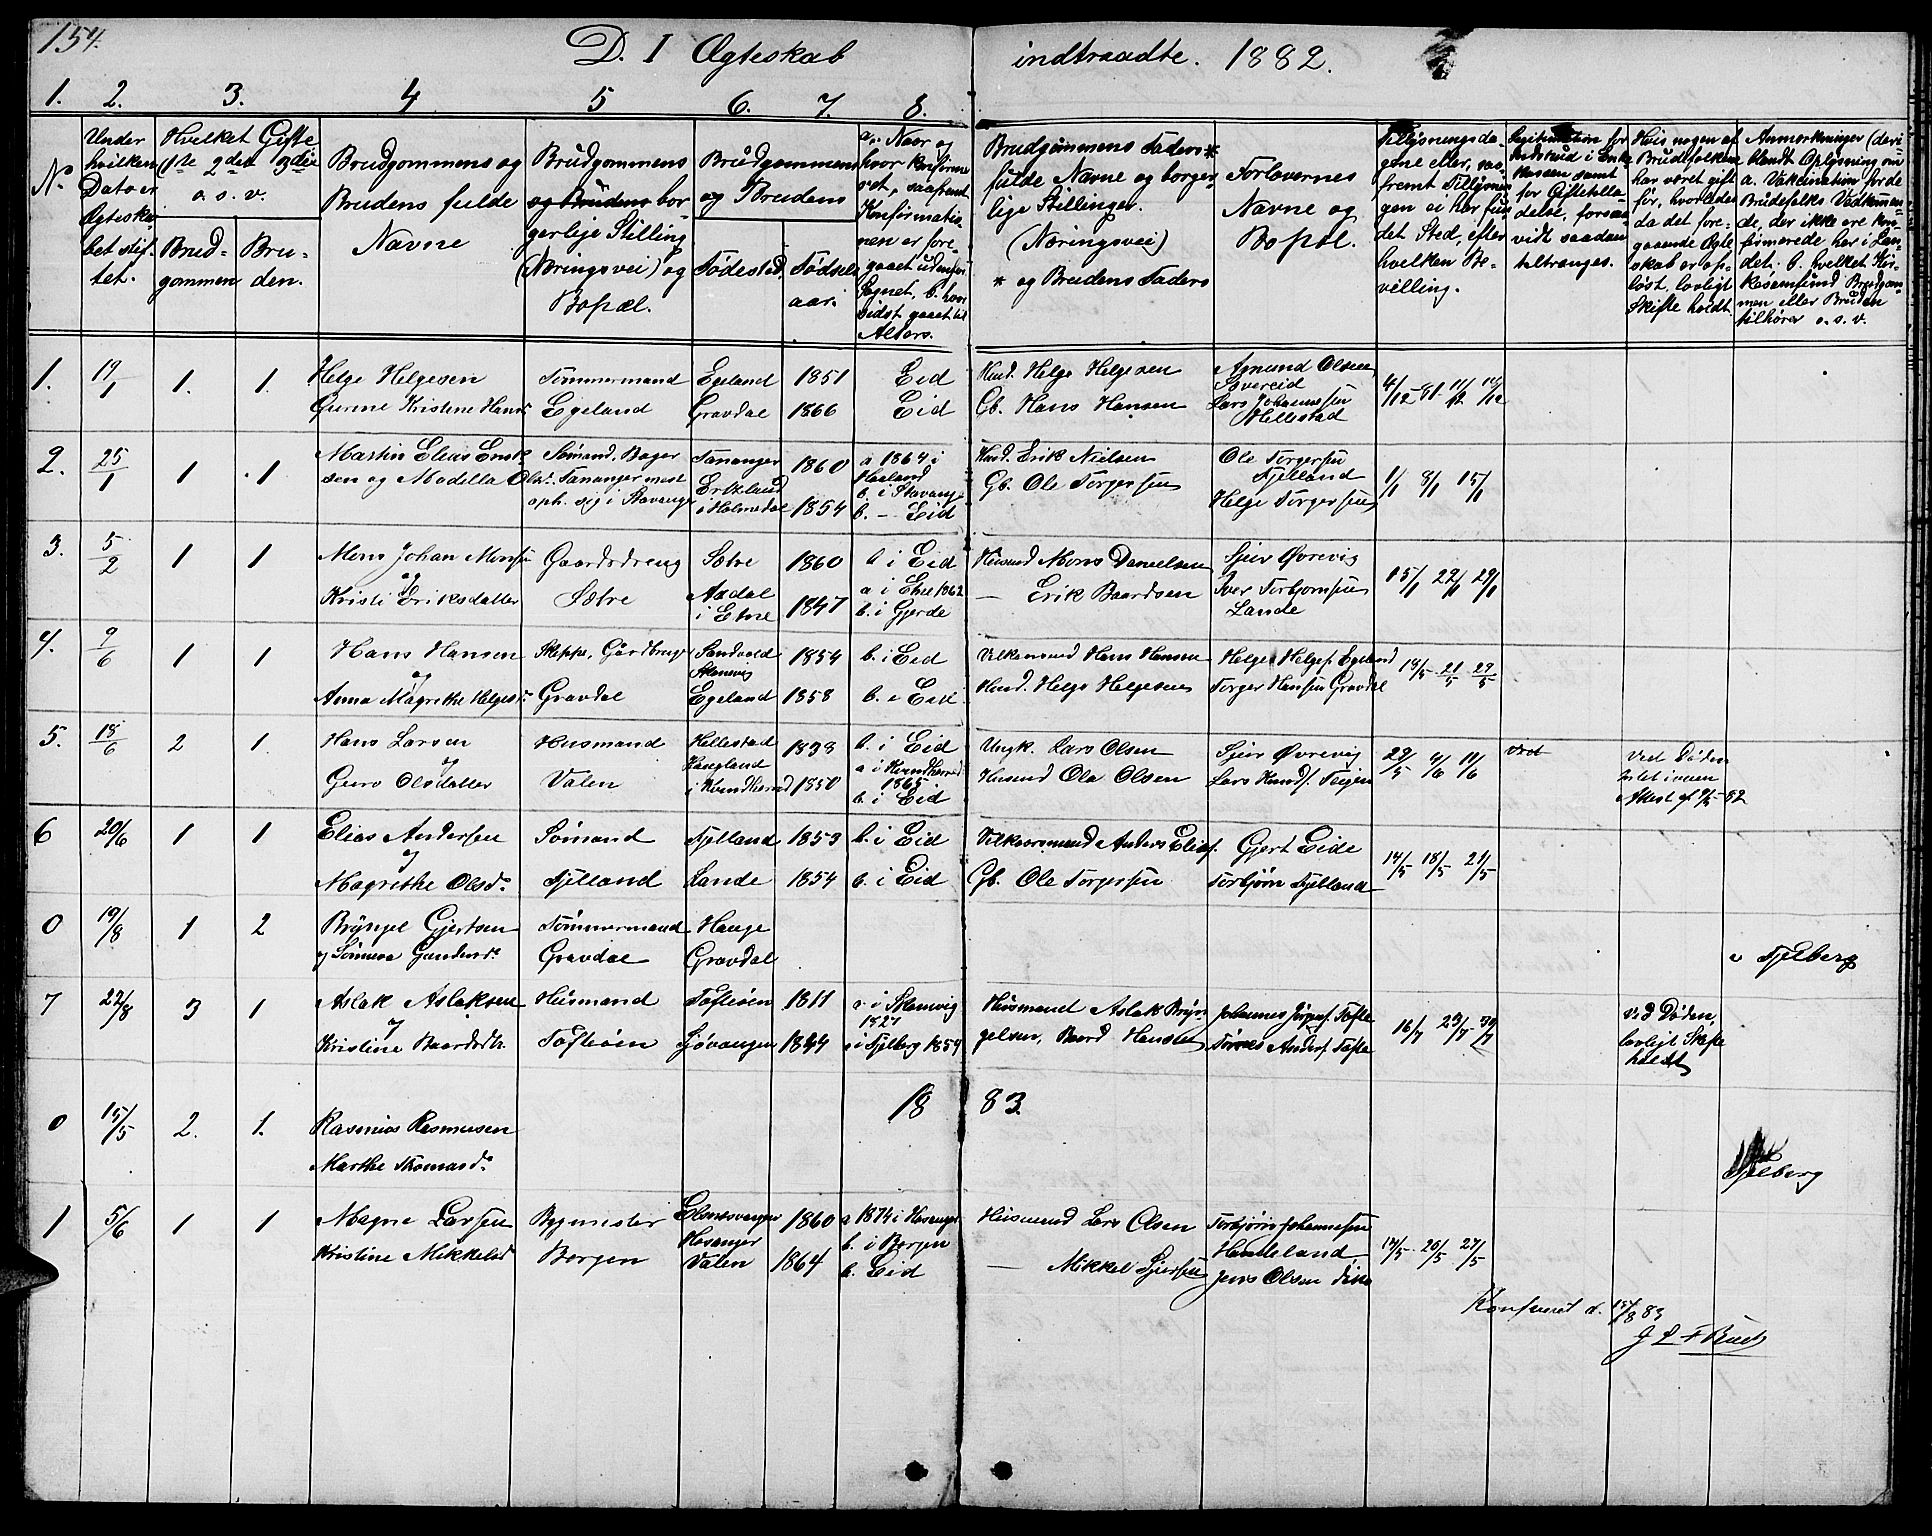 154.
D. I Ægteskab indtraadte. 1882.
1. 2. 3. 4 5 6. 7. 8.
No
Under hvilken Dato er Ægteskabet stiftet.
Hvilket Gifte (1te 2det 3die o. s. v.
Brudgommen
Bruden.
Brudgommens og Brudens fulde Navne
Brudgommens og Brudens borgerlije Stilling (Næringsvei) og Bopæl.
Brudgommens og Brudens
Fødested
Fødselsaar.
a. Naar og hvor konfirmeret, saafremt Konfirmationen er foregaaet udenfor Sognet, b. hvor sidst gaaet til Alters.
Brudgommens Faders * fulde Navne og borgerlige Stillinger. (Næringsvei)
* og Brudens Faders
Forlovernes Navne og Bopæl.
Tillysningsdagene eller, saafremt Tillysningen ei har fundet Sted, efter hvilken Bevilling.
Legitimation for Indskud i Enkekassen samt for Giftetilladelse, forsaavidt saadan tiltrænges.
Hvis nogen af Brudefolkene har været gift før, hvorledes da det foregaaende Ægteskab er opløst, lovligt Skifte holdt.
Anmærkninger (deriblandt Oplysning om a. Vakcination for de Brudefolks Vedkommende, der ikke ere konfirmerede her i Landet. b. hvilket Kirkesamfund Brudgommen eller Bruden tilhører o. s. v.
1. 19/1 1. 1. Helge Helgesen Tømmermand Egeland 1851 Eid Husd. Helge Helgesen Amund Olsen Søvereid 4/12-81 11/12 18/12
Gurine Kristine Hansd. Egeland Gravdal 1866 Eid Gb. Hans Hansen Lars Johannessen Hellestad
2. 25/1 1 1 Martin Elias Eriksen og Madella Olsd. Sømand, Bager Tananger mest oph. sig i Stavanger Tananger 1860 a 1864 i Haaland b. i Stavang. Husd. Erik Nielsen Ole Torgersen Fjelland 1/1 8/1 15/1
Erikland i Holmedal 1854 b. - Eid Gb. Ole Torgersen Helge Torgersen
3. 5/2 1 1 Mons Johan Monsen Gaardsdreng Sætre 1860 b i Eid Husmd Mons Danielsen Sjur Øvrevig 15/1 22/1 29/1
og Kristi Eriksdatter Sætre Axdal i Etne 1847 a i Etne 1862 b. i Gjerde — Erik Baardsen Iver Torbjørnsen Lande
4. 9/6 1 1 Hans Hansen Skippr, Gårdbruger Sandvold Skaanevig 1854 b. i Eid Vilkaarsmd Hans Hansen Helge Helges. Egeland 18/5 21/5 29/5
og Anna Magrethe Helgesd. Gravdal Egeland 1858 b. i Eid Husmd. Helge Helgesen Torger Hansen Gravdal
5. 18/6 2 1. Hans Larsen Husmand Hellestad 1838 b. i Eid Ungk. Lars Olsen Sjur Øvrevig 29/5 4/6 11/6 Ved Døden
og Guro Olsdatter Valen i Kvindherred 1850 a i Kvindherred 1865 b. i Eid Husmd Ola Olsen Lars Knuds. Teigen Attest af 9/5-82
6 20/6 1 1 Elias Andersen Sømand Fjelland 1853 b. i Eid Vilkaarsmand Anders Elias. Gjert Eide 14/5 18/5 21/5
og Magrethe Olsd. Fjelland Lande 1854 b. i Eid Gb. Ole Torgersen Torbjørn Fjelland
0 19/8 1 2 Brynjel Gjertsen Tømmermand Hauge
og Sønneva Gundersd. Gravdal Gravdal i Fjelberg
7 22/8 3 1 Aslak Aslaksen Husmand Tofteøen 1811 a. i Skaanevig 1827 Husmand Aslak Brynjelsen, Johannes Jørgens. Tofte 16/7 23/7 30/7 Ved Døden, lovligt Skifte holdt
og Kristine Baardsdtr. Tofteøen Sjøvangen 1844 a i Fjelberg 1854 Baard Hansen Tørres Anders. Tofte
1883.
0 15/5 2. 1. Rasmus Rasmusen
Marthe Thomasd. Fjelberg
1 5/6 1 1 Magne Larsen Bygmester Elvnesvangen Hosanger 1860 a 1874 i Hosanger b. i Bergen Husmand Lars Olsen Torbjørn Johannesen Handeland 14/5 20/5 27/5
Kristine Mikkelsd. Bergen Valen 1864 b. Eid — Mikkel Sjursen Jens Olsen ditto
Konfereret d. 15/8 83